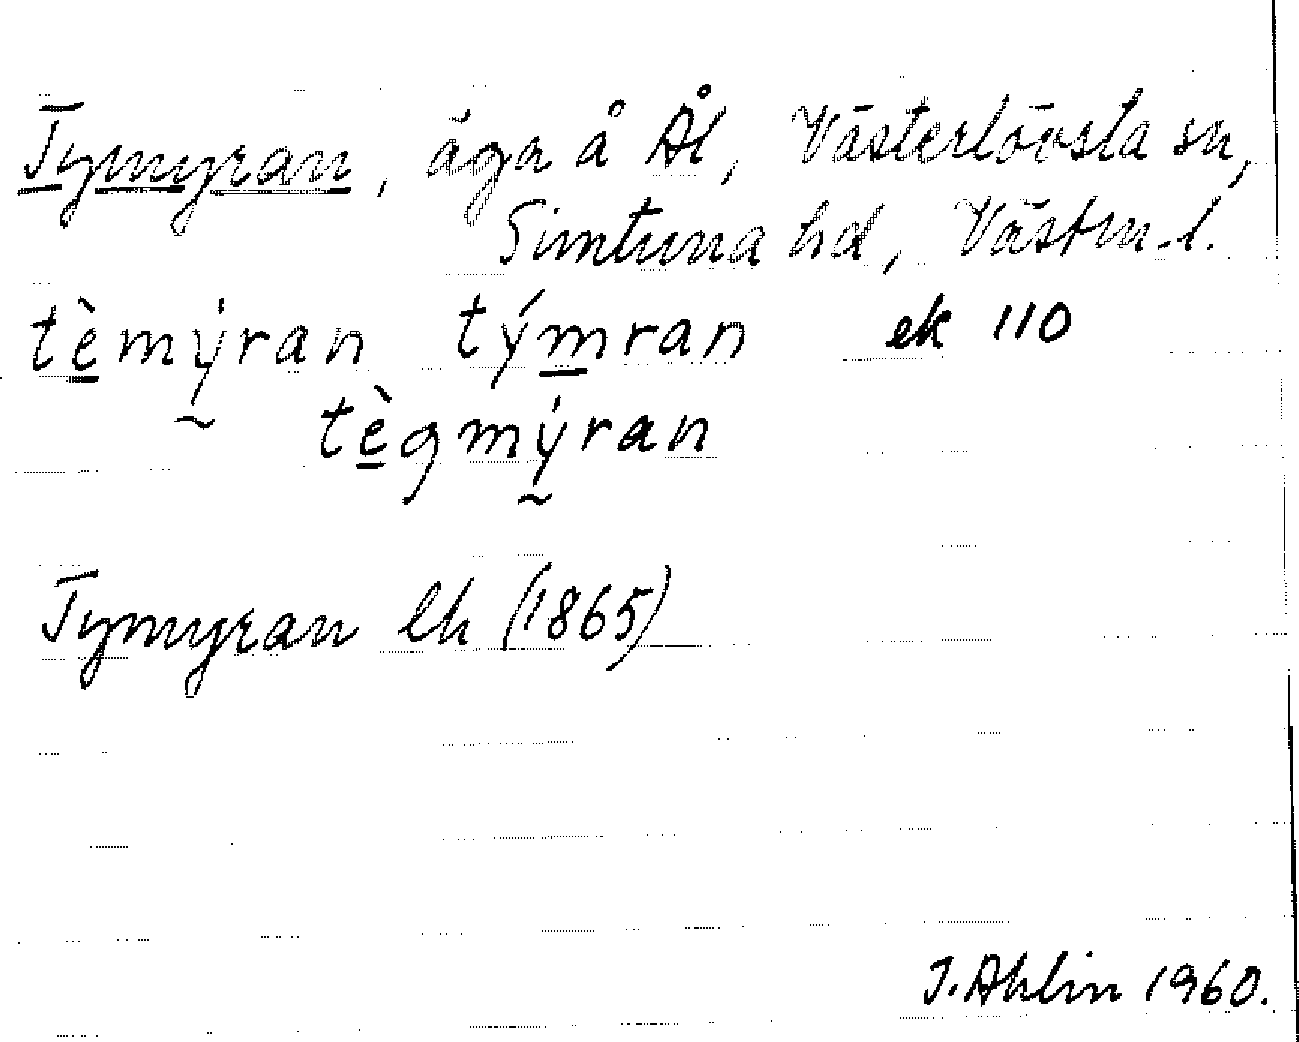 Tymyran, äga å Ål, Västerlövsta sn,
Simtuna hd, Västm.l.
tèmẏran týmran ek 110
tègmẏran
Tymyran lh (1865)
J. Ahlin 1960.